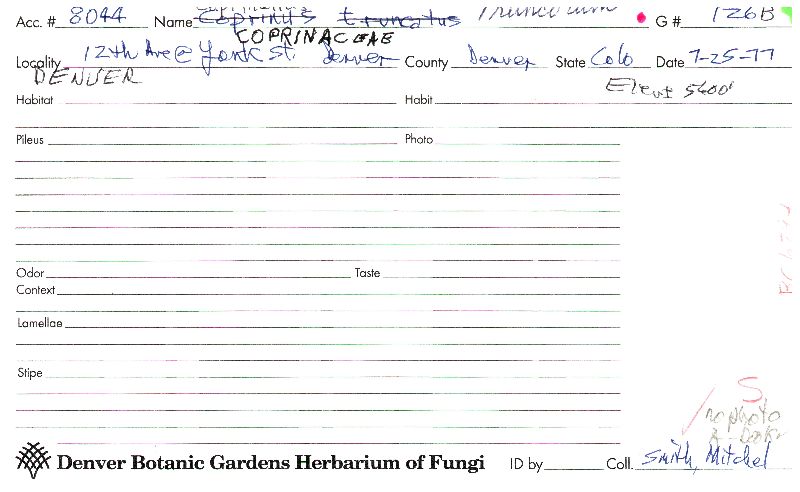 Acc. # 8044 Name Coprinus truncatus Truncorum G # 126B
COPRINACEAE
Locality 12th Ave @ York St. Denver County Denver State Colo Date 7-25-77
DENVER Elev 5600'
Habitat Habit
Pileus Photo
Odor Taste
Context
Lamellae
Stipe
S
no photo
Denver Botanic Gardens Herbarium of Fungi ID by Coll. Smith, Mitchel